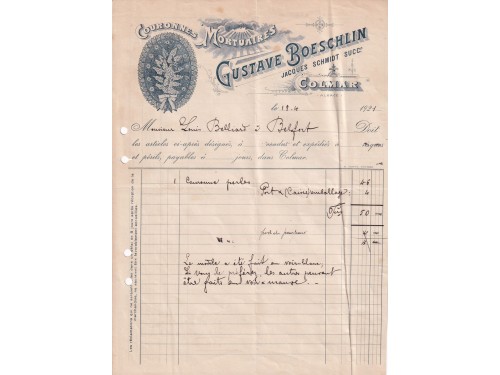 COURONNES MORTUAIRES
GUSTAVE BOESCHLIN
JACQUES SCHMIDT SUCCR
COLMAR
le 19.4 1921
Monsieur Louis Belliard à Belfort Doit
les articles ci-après désignés, à vendus et expédiés à
et périls, payables à jours, dans Colmar.
1 Couronne perles 46
Port & (Caisse) emballage 4
50
Le modèle a été fait en noir-blanc
Si vous le préférez, les autres peuvent
être faits en noir & mauve.